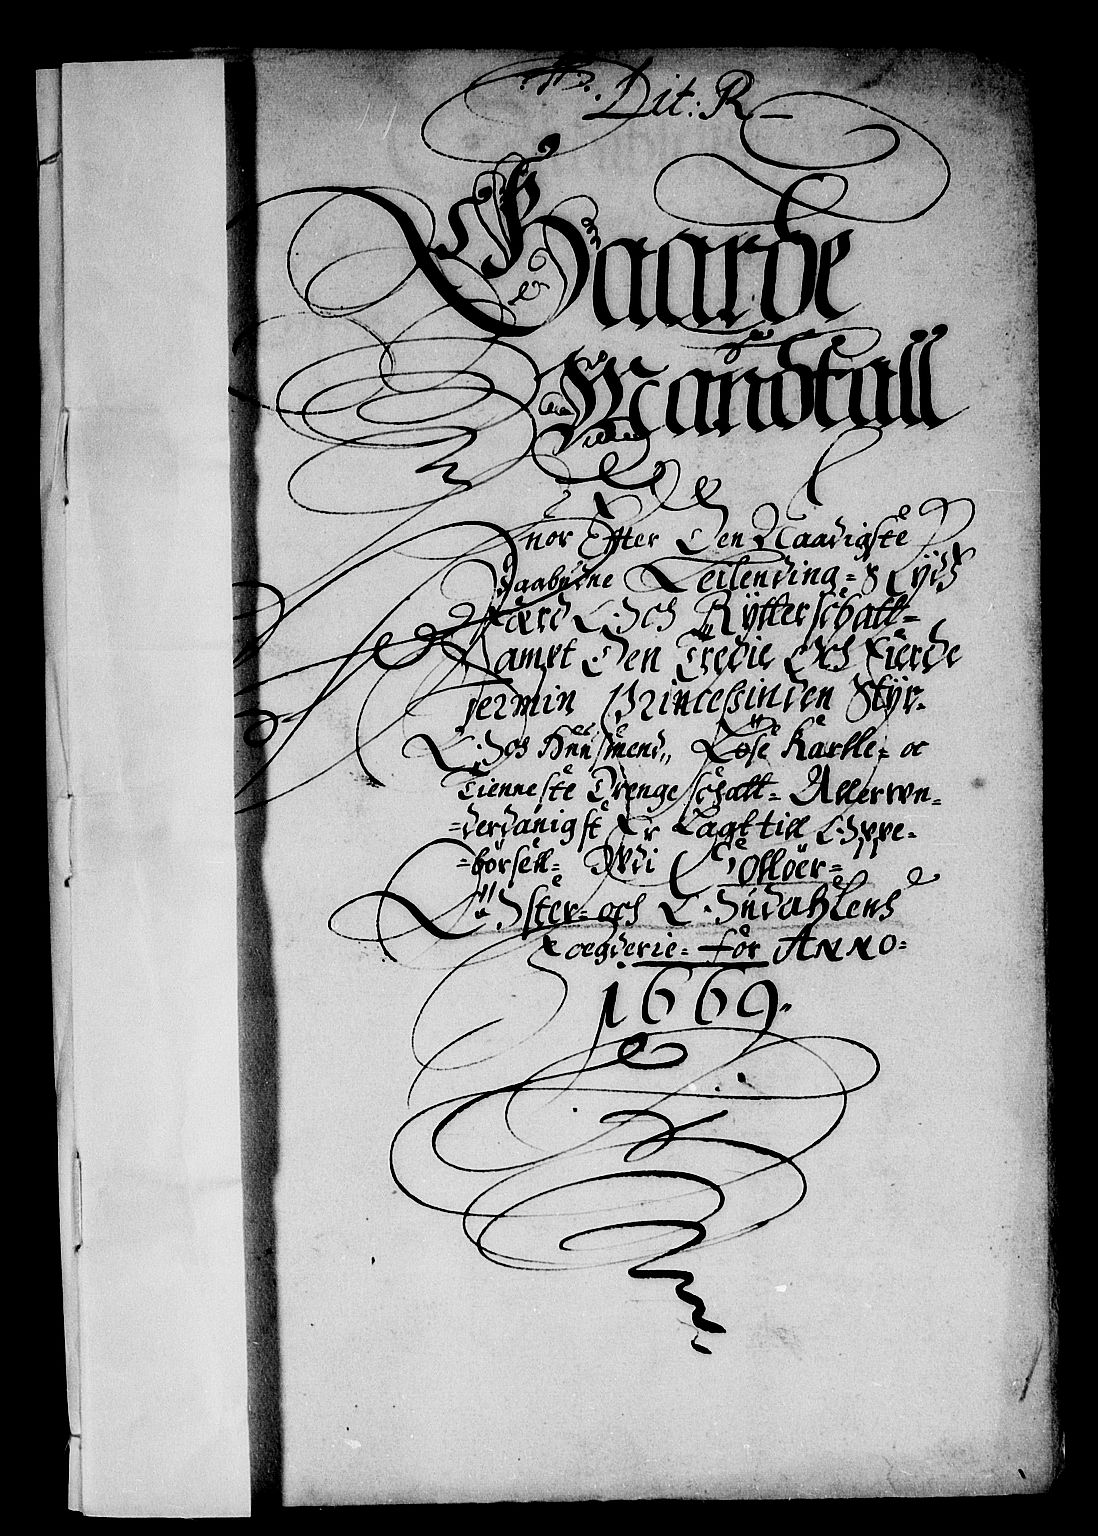 Lit: R
Gaarde
Mandtall
hvor Efter Den Naadigste
Paabudne Leilending-S
færd Och Rÿtterschatt-
sampt Den Tredie Och Fierde
Termin Princessinden Stÿr.
Och Huusmend,, Løse Karlle- oc
Tienneste Drenge schatt- Allerwn-
-derdanigst Er Lagt till Oppe-
-børsell- Wdi Solløer-
Øster- och Odahlens
Foegderie- for ANNO-
1669.